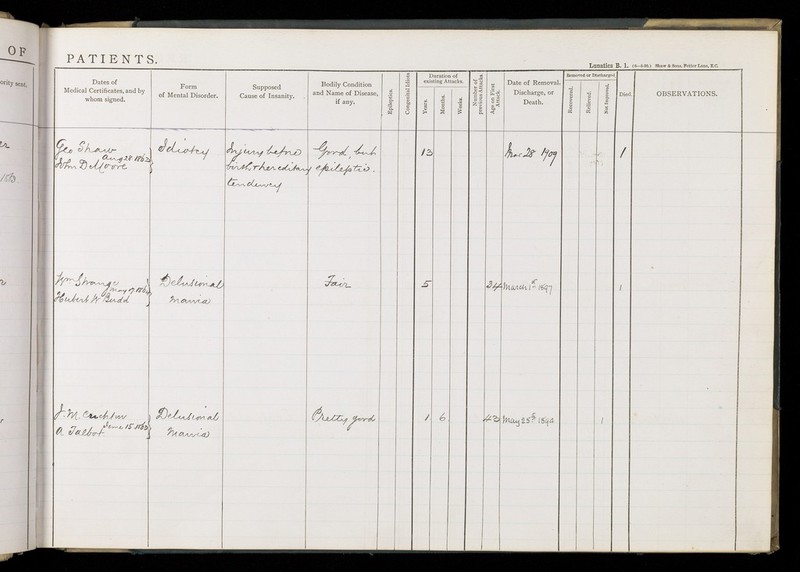 OF
PATIENTS.
Lunatics B. 1. Shaw & Sons, Fetter Lane, E.C.
Dates of
Medical Certificates, and by
whom signed.
Form
of Mental Disorder.
Supposed
Cause of Insanity.
Bodily Condition
and Name of Disease,
if any.
Epileptics.
Congenital Idiots
Duration of
existing Attacks.
Years.
Months.
Weeks.
Number of
previous Attacks
Age on First
Attack.
Date of Removal,
Discharge, or
Death.
Removed or Discharged.
Recovered.
Relieved.
Not Improved.
Died.
OBSERVATIONS.
Geo Shaw
Aug 28 1863
John
Idiotcy
Injury before
birth, & hereditary
tendency
Good, but
epileptic.
13
Mar 28 1909
1
Wm Strange
May 17 1863
Hubert W Budd
Delusional
Mania
Fair
5
24
March 1st 1897
1
J. M. Crichton
June 15 1863
A Talbot
Delusional
Mania
Pretty good
1 6
43
May 25th 1892
1